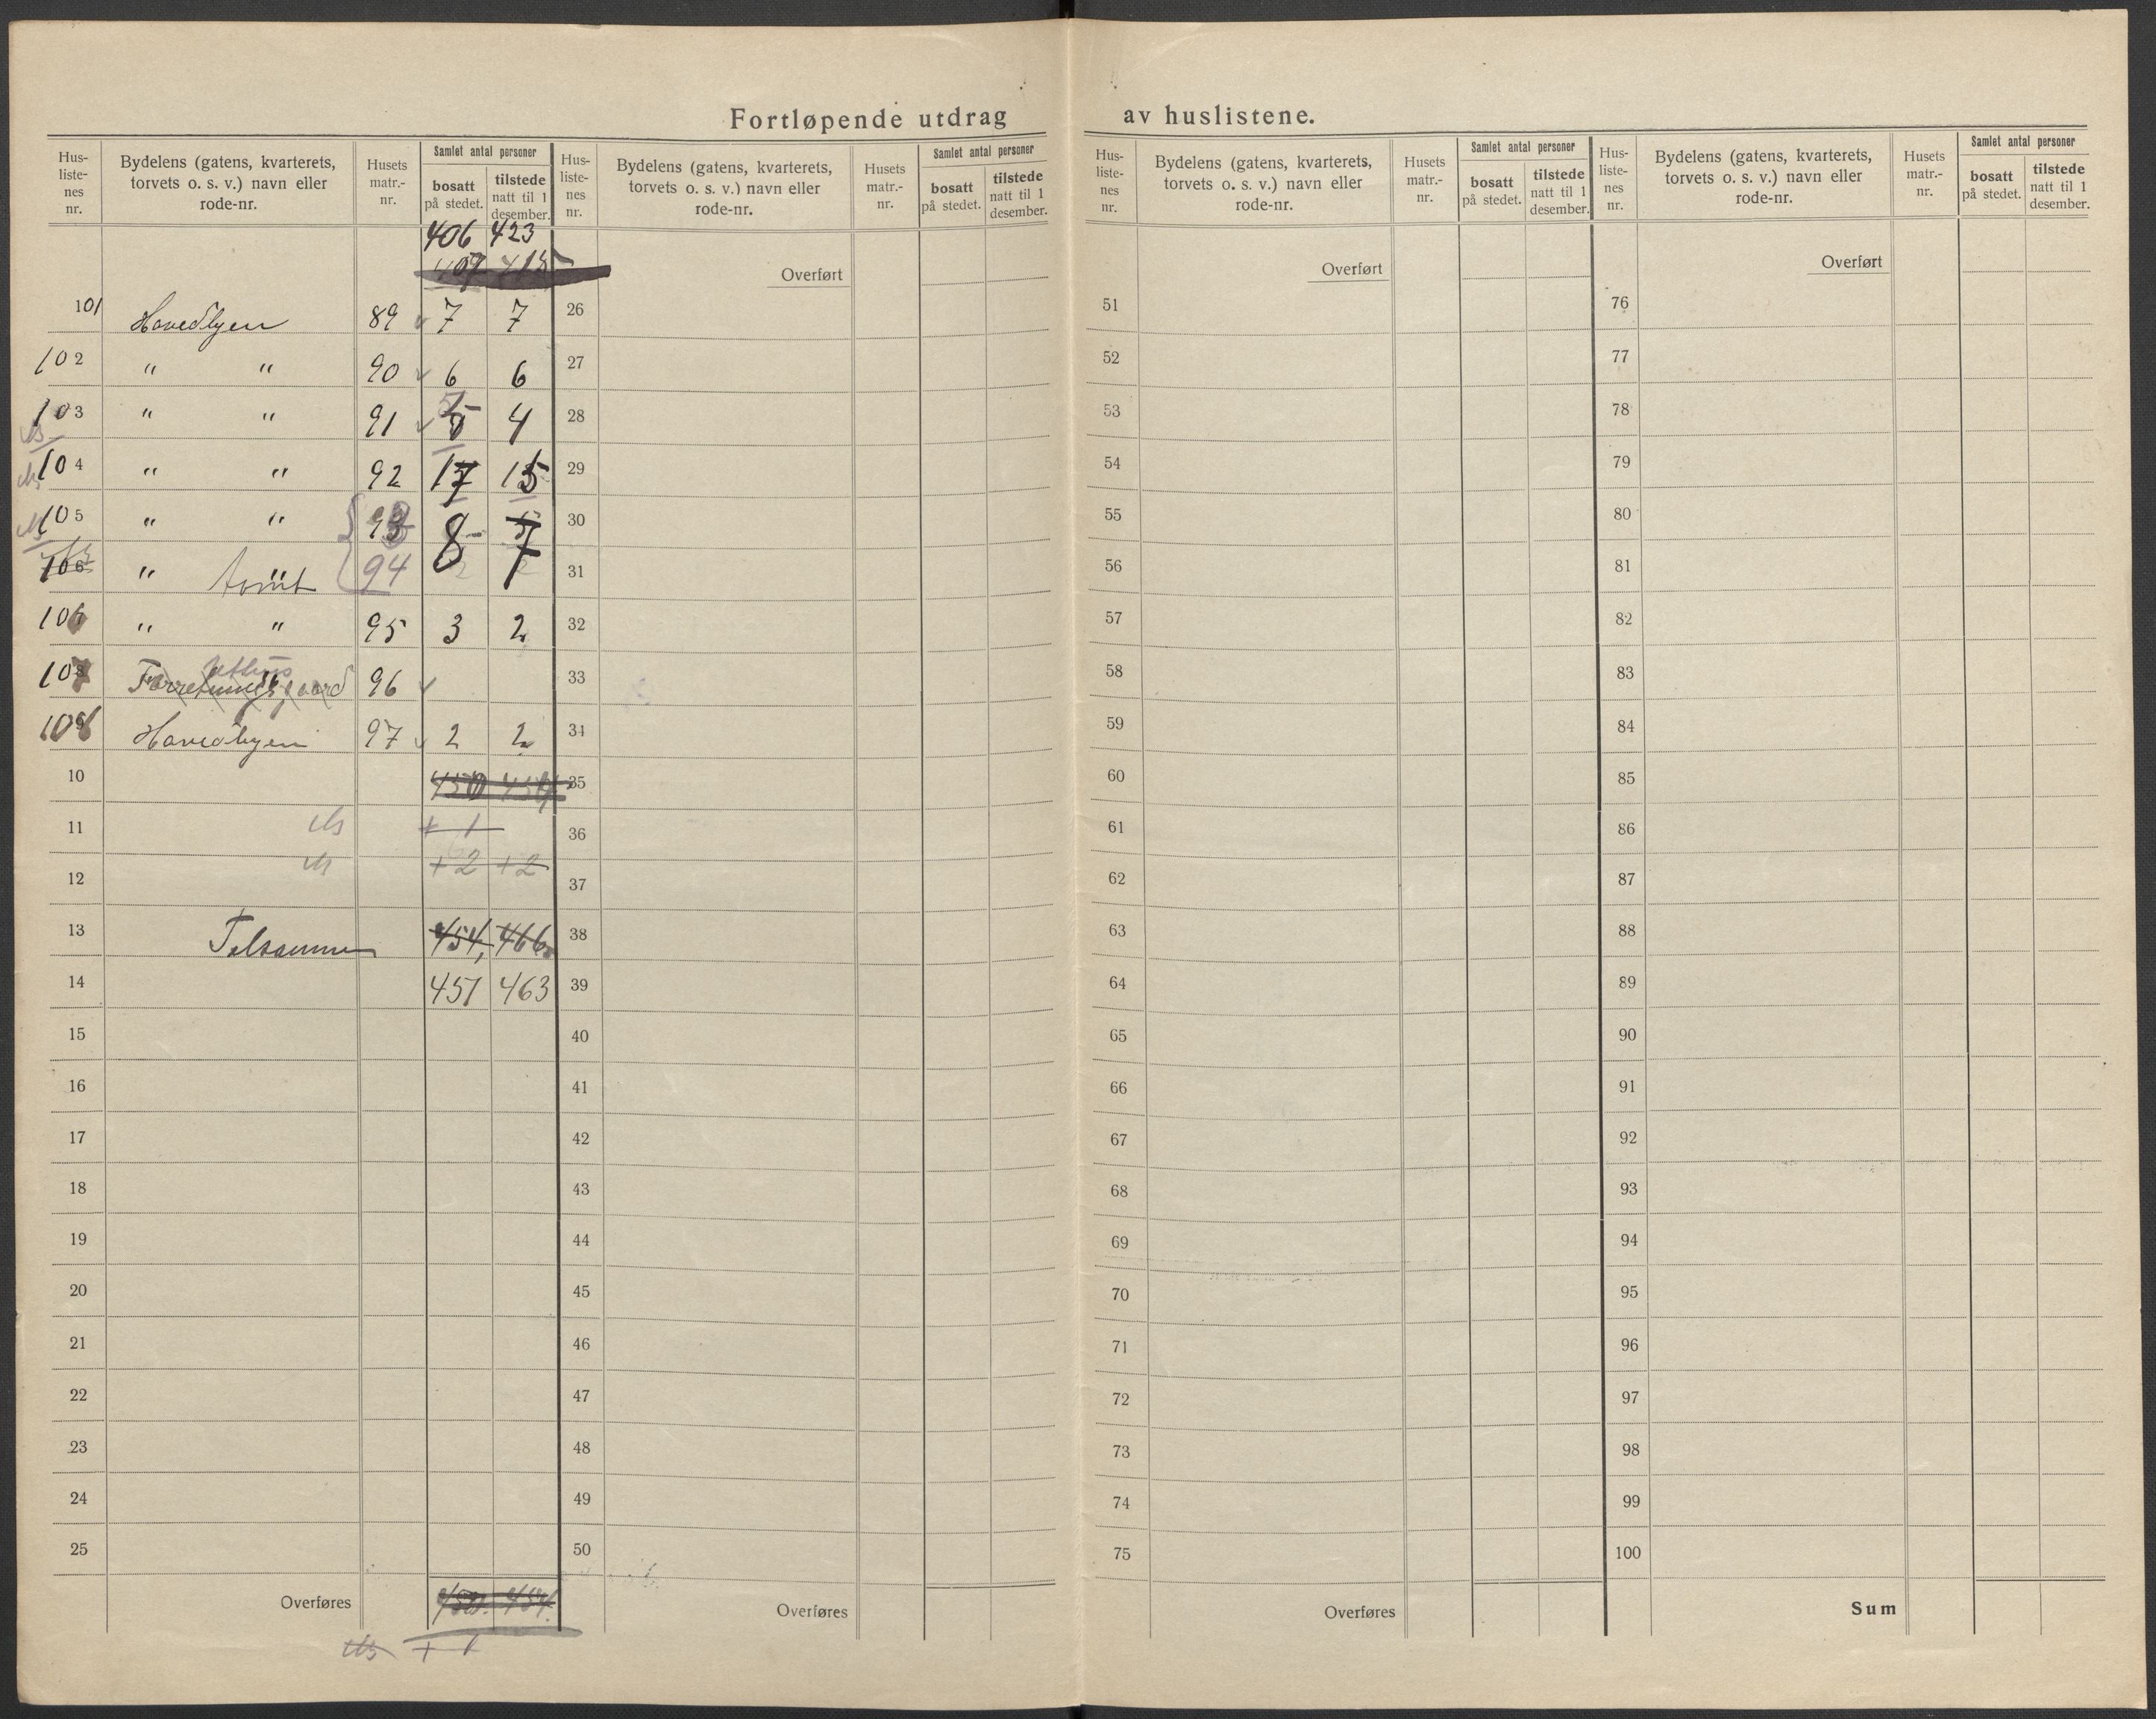 Fortløpende utdrag av huslistene.
Hus-listenes nr. | Bydelens (gatens, kvarterets, torvets o. s. v.) navn eller rode-nr. | Husets matr.-nr. | Samlet antal personer | bosatt på stedet. | tilstede natt til 1 desember.
406 423
101 Havedbyen 89 7 7
102 " " 90 6 6
103 " " 91 4
104 " " 92 17 15
105 " " 93 8 7
" " 94
106 " " 95 3 2
107 Forretningsgaard 96
108 Havedbyen 97 2 2
10 450
11 + 1
12 + 2 + 2
13 Tilsammen 454 466
14 451 463
15
16
17
18
19
20
21
22
23
24
25
Overføres
+ 1
Hus-listenes nr. | Bydelens (gatens, kvarterets, torvets o. s. v.) navn eller rode-nr. | Husets matr.-nr. | Samlet antal personer | bosatt på stedet. | tilstede natt til 1 desember.
Overført
26
27
28
29
30
31
32
33
34
35
36
37
38
39
40
41
42
43
44
45
46
47
48
49
50
Overføres
Hus-listenes nr. | Bydelens (gatens, kvarterets, torvets o. s. v.) navn eller rode-nr. | Husets matr.-nr. | Samlet antal personer | bosatt på stedet. | tilstede natt til 1 desember.
Overført
51
52
53
54
55
56
57
58
59
60
61
62
63
64
65
66
67
68
69
70
71
72
73
74
75
Overføres
Hus-listenes nr. | Bydelens (gatens, kvarterets, torvets o. s. v.) navn eller rode-nr. | Husets matr.-nr. | Samlet antal personer | bosatt på stedet. | tilstede natt til 1 desember.
Overført
76
77
78
79
80
81
82
83
84
85
86
87
88
89
90
91
92
93
94
95
96
97
98
99
100
Sum